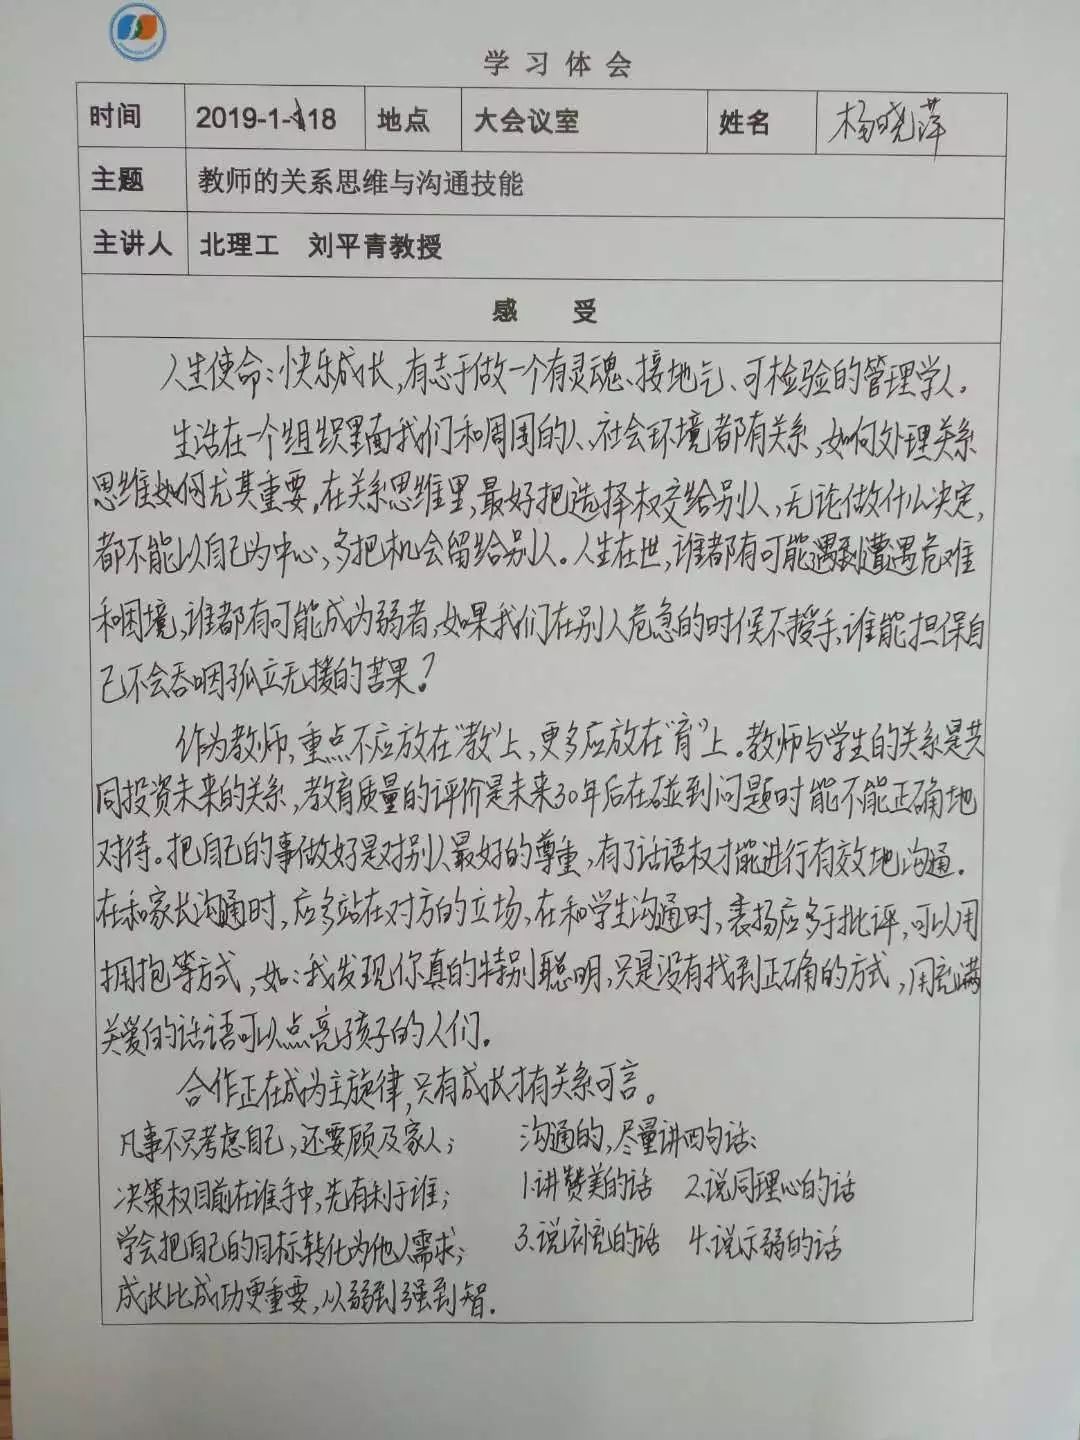 学习体会
时间 2019-1-18 地点 大会议室 姓名 杨晓萍
主题 教师的关系思维与沟通技能
主讲人 北理工 刘平青教授
感 受
人生使命：快乐成长，有志于做一个有灵魂、接地气、可检验的管理学人。
生活在一个组织里面我们和周围的人、社会环境都有关系，如何处理关系
思维如何尤其重要。在关系思维里，最好把选择权交给别人，无论做什么决定，
都不能以自己为中心，多把机会留给别人。人生在世，谁都有可能遇到遭遇危难
和困境，谁都有可能成为弱者，如果我们在别人危急的时候不援手，谁能担保自
己不会吞咽孤立无援的苦果？
作为教师，重点不应放在“教”上，更多应放在“育”上。教师与学生的关系是共
同投资未来的关系，教育质量的评价是未来30年后在碰到问题时能不能正确地
对待。把自己的事做好是对别人最好的尊重，有了话语权才能进行有效地沟通。
在和家长沟通时，应多站在对方的立场，在和学生沟通时，表扬应多于批评，可以用
拥抱等方式，如：我发现你真的特别聪明，只是没有找到正确的方式，用充满
关爱的话语可以点亮孩子的人们。
合作正在成为主旋律，只有成长才有关系可言。
凡事不只考虑自己，还要顾及家人； 沟通的，尽量讲四句话：
决策权目前在谁手中，先有利于谁； 1.讲赞美的话 2.说同理心的话
学会把自己的目标转化为他人需求； 3.说补充的话 4.说示弱的话
成长比成功更重要，从弱到强到智。